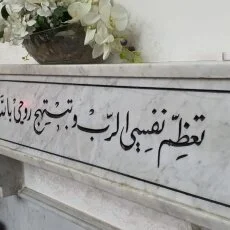 تعظّم نفسي الرّب وتبتهج روحي بالله